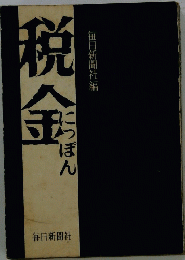 毎日新聞社編
税金
にっぽん
毎日新聞社